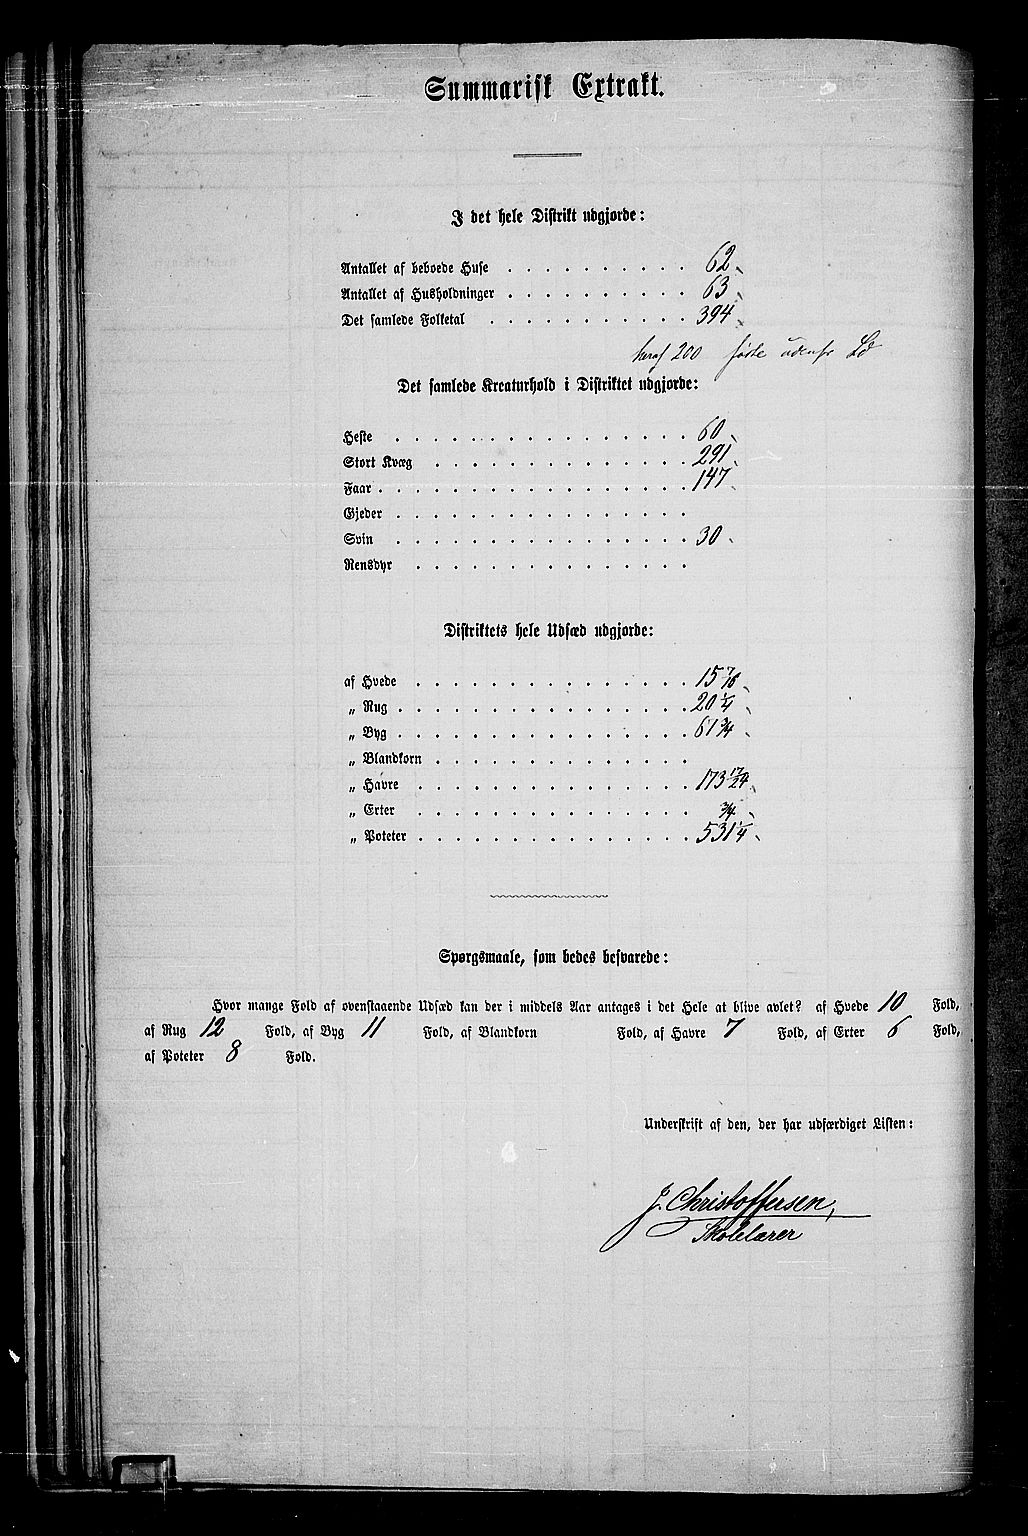 Summarisk Extrakt.
I det hele Distrikt udgjorde:
Antallet af beboede Huse . . . . . . . . . . 62
Antallet af Husholdninger . . . . . . . . . . 63
Det samlede Folketal . . . . . . . . . . . 394
heraf 200 fødte udenfr
Det samlede Kreaturhold i Distriktet udgjorde:
Heste . . . . . . . . . . . . . . . . 60
Stort Kvæg . . . . . . . . . . . . . . 291
Faar . . . . . . . . . . . . . . . . . 147
Gjeder . . . . . . . . . . . . . . . .
Svin . . . . . . . . . . . . . . . . 30
Rensdyr . . . . . . . . . . . . . . .
Distriktets hele Udsæd udgjorde:
af Hvede . . . . . . . . . . . . . . . 15 7/16
„ Rug . . . . . . . . . . . . . . . . 20 1/4
„ Byg . . . . . . . . . . . . . . . . 61 3/4
„ Blandkorn . . . . . . . . . . . . . .
„ Havre . . . . . . . . . . . . . . . 173 17/24
„ Erter . . . . . . . . . . . . . . . 3/4
„ Poteter . . . . . . . . . . . . . . . 531 1/4
Spørgsmaale, som bedes besvarede:
Hvor mange Fold af ovenstaaende Udsæd kan der i middels Aar antages i det Hele at blive avlet? af Hvede 10 Fold,
af Rug 12 Fold, af Byg 11 Fold, af Blandkorn Fold, af Havre 7 Fold, af Erter 6 Fold,
af Poteter 8 Fold.
Underskrift af den, der har udfærdiget Listen:
J. Christoffersen,
Skolelærer